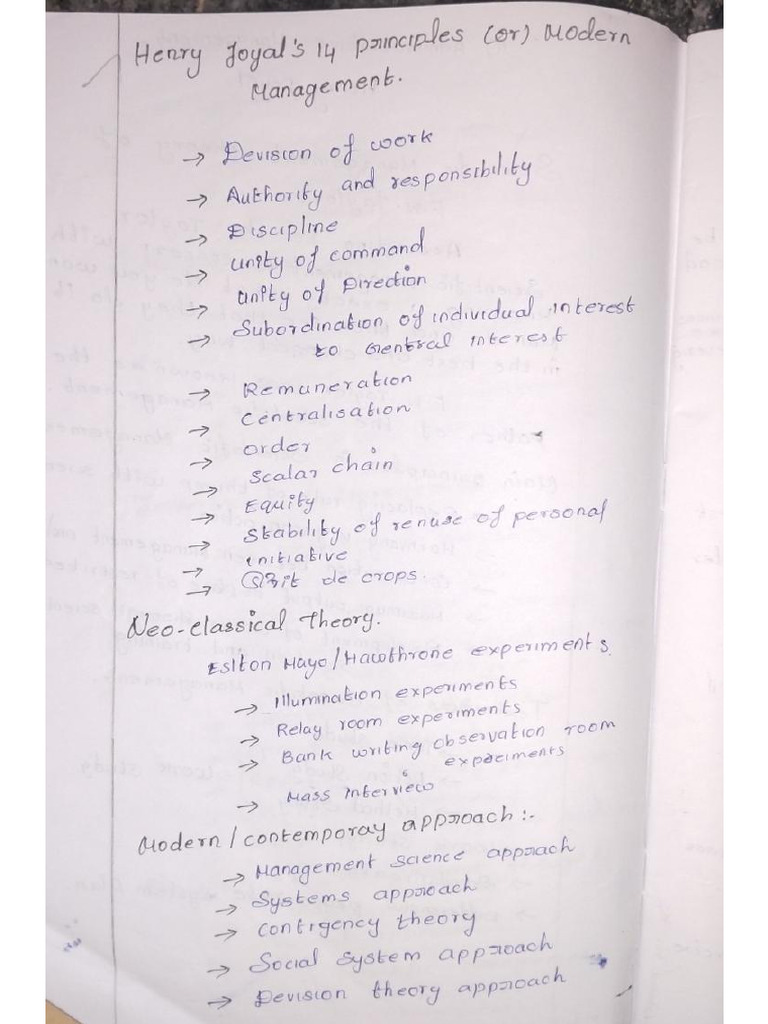 Henry Joyal's 14 principles (or) Modern
Management.
→ Devision of work
→ Authority and responsibility
→ Discipline
→ unity of command
→ unity of Direction
→ Subordination of individual interest
to General interest
→ Remuneration
→ Centralisation
→ order
→ Scalar chain
→ Equity
→ Stability of renuse of personal
→ initiative
→ de crops.
Neo-classical Theory.
Eslton Mayo/Hawothrone experiments.
→ Illumination experiments
→ Relay room experiments
→ Bank writing observation room
experiments
→ Mass Interview
Modern/contemporay approach:-
→ Management science approach
→ Systems approach
→ Contigency theory
→ Social System approach
→ Devision theory approach